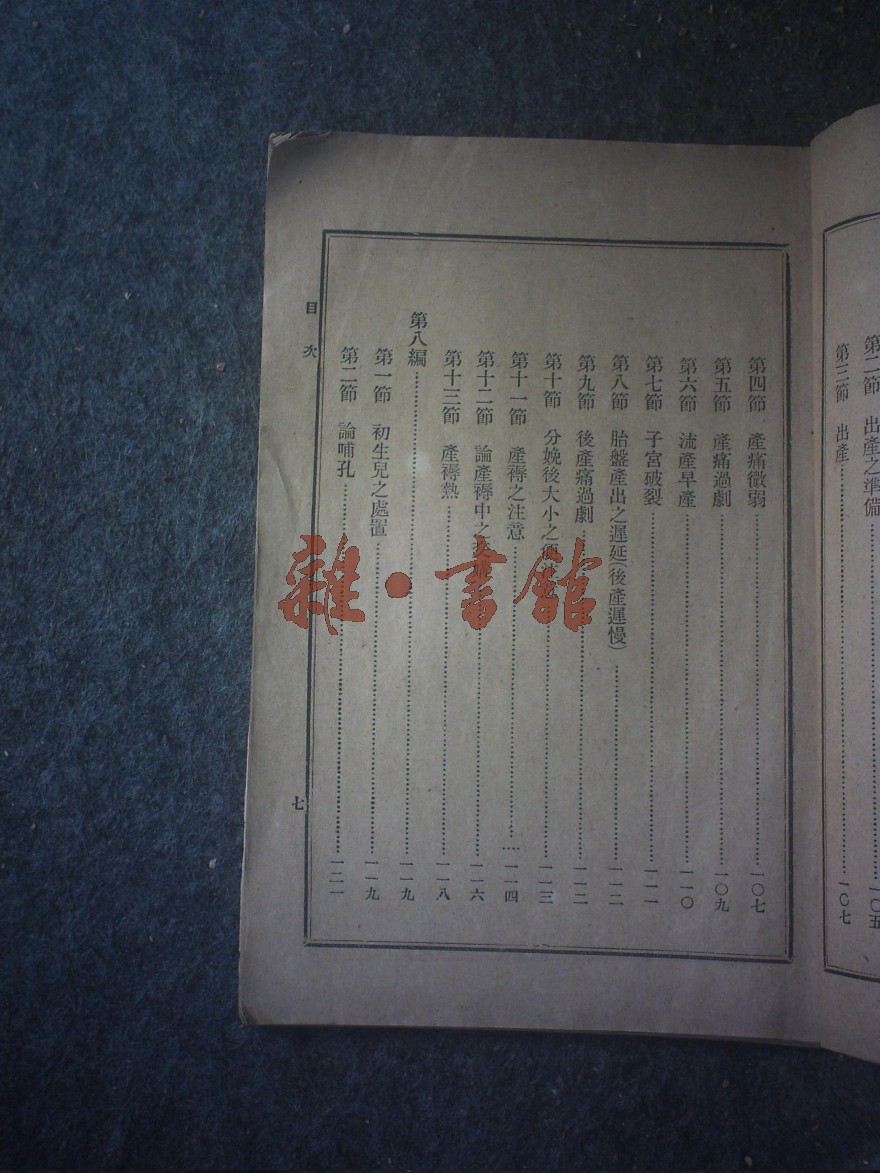 第二節　出產之準備……一〇五
第三節　出產……一〇七
第四節　產痛微弱……一〇七
第五節　產痛過劇……一〇九
第六節　流產早產……一一〇
第七節　子宮破裂……一一一
第八節　胎盤產出之遲延(後產遲慢)……一一二
第九節　後產痛過劇……一一二
第十節　分娩後大小之便……一一三
第十一節　產褥之注意……一一四
第十二節　論產褥中之……一一六
第十三節　產褥熱……一一八
第八編……一一九
第一節　初生兒之處置……一一九
第二節　論哺乳……一二一
目次
七
雜·書館